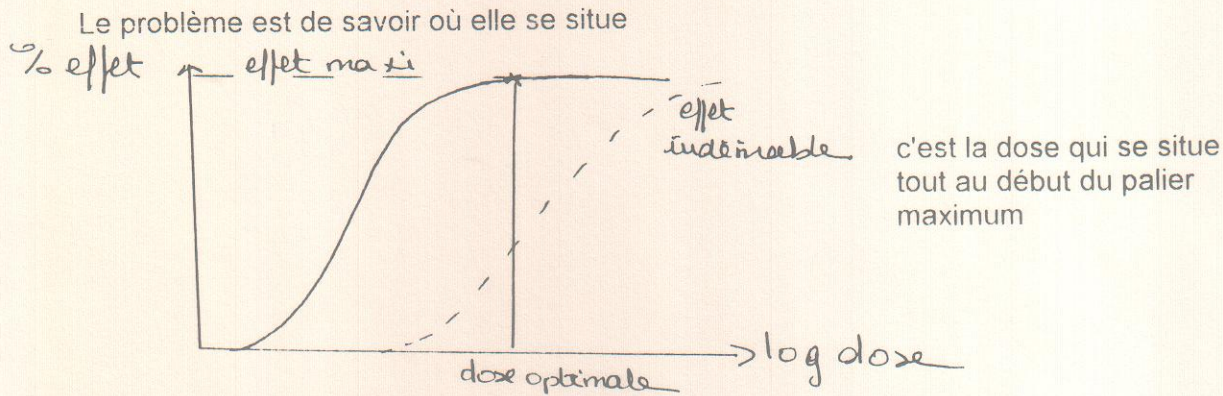 Le problème est de savoir où elle se situe
% effet
effet maxi
effet
indésirable
c'est la dose qui se situe
tout au début du palier
maximum
log dose
dose optimale